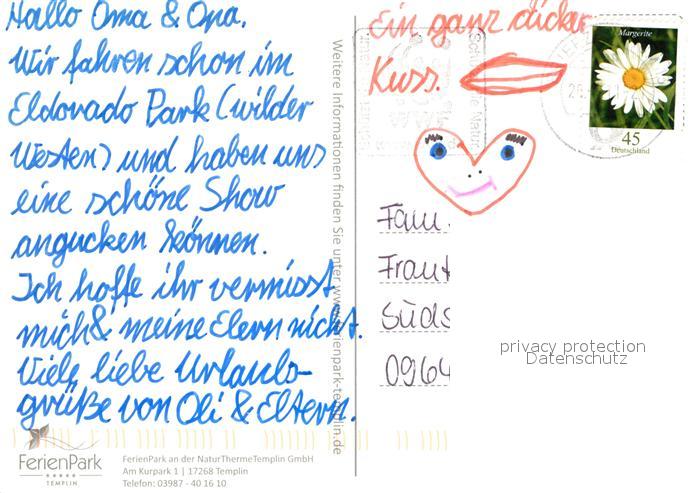 Hallo Oma & Opa.
Wir fahren schon im
Eldorado Park (wilder
Westen) und haben uns
eine schöne Show
angucken können.
Ich hoffe ihr vermisst
mich & meine Elern nicht.
Viele liebe Urlaubs-
grüße von Oli & Eltern.
FerienPark
TEMPLIN
FerienPark an der NaturThermeTemplin GmbH
Am Kurpark 1 | 17268 Templin
Telefon: 03987 - 40 16 10
Weitere Informationen finden Sie unter www.ferienpark-templin.de
Ein ganz dicker
Kuss.
Margerite
45
Deutschland
Fam.
Frank
Süds
0964
privacy protection
Datenschutz